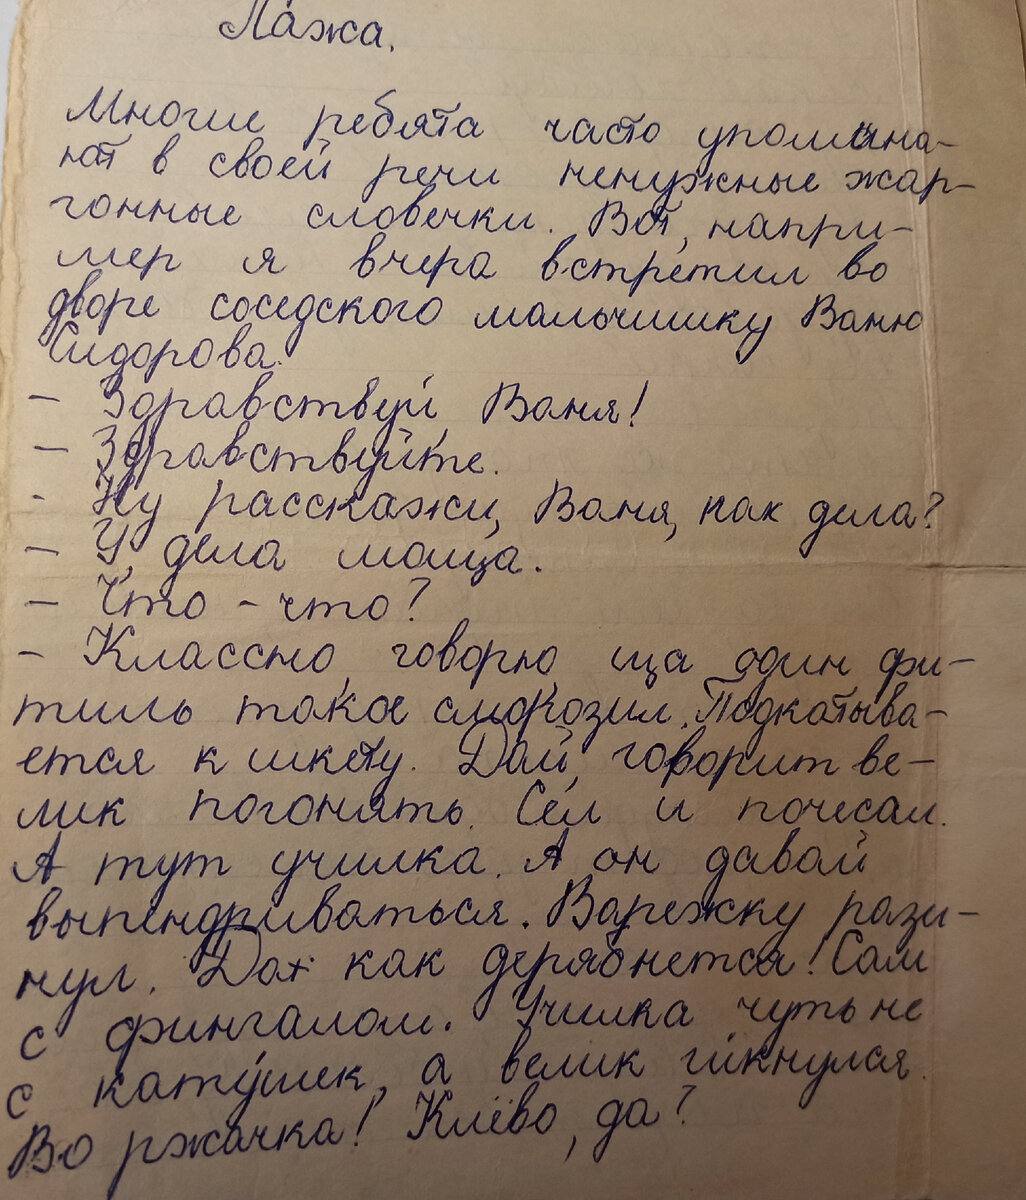 Лажа.
Многие ребята часто упомина-
ют в своей речи ненужные жар-
гонные словечки. Вот, напри-
мер я вчера встретил во
дворе соседского мальчишку Ваню
Сидорова.
- Здравствуй, Ваня!
- Здравствуйте.
- Ну расскажи, Ваня, как дела?
- У, дела маица.
- Что - что?
- Классно, говорю, ща один фи-
тиль такое сморозил. Подкатыва-
ется к шкету. Дай, говорит ве-
лик погонять. Сел и почесал.
А тут училка. А он давай
выпендриваться. Варежку рази-
нул. Да как дерябнется! Сам
с фингалом. Училка чуть не
с катушек, а велик гикнулся.
Во ржачка! Клёво, да?